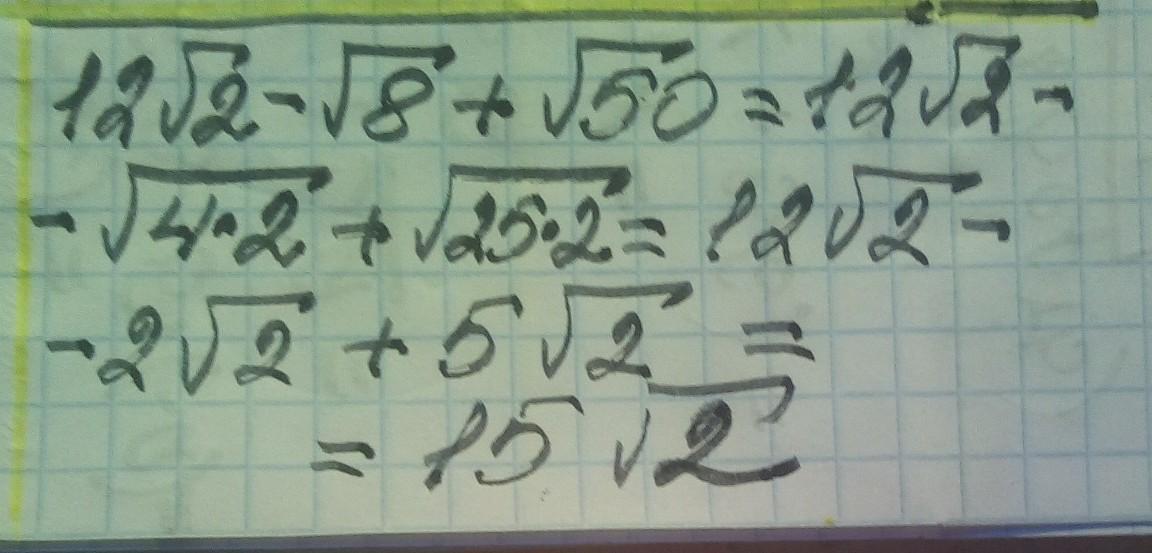 12√2 - √8 + √50 = 12√2 -
- √4·2 + √25·2 = 12√2 -
- 2√2 + 5√2 =
= 15√2